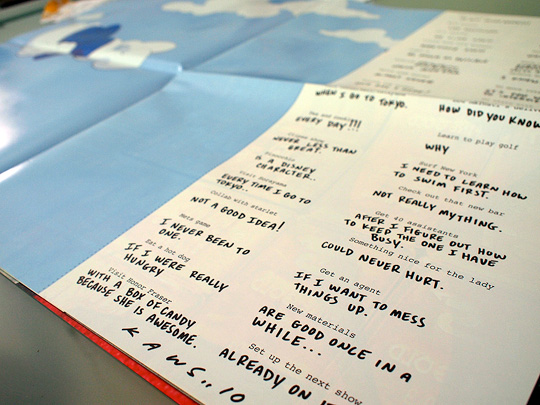 WHEN I GO TO TOKYO.
EVERY DAY!!!
NEVER LESS THAN
GREAT.
Pinocchio
IS A DISNEY
CHARACTER..
Visit Harayama
EVERY TIME I GO TO
TOKYO..
Collab with starlet
NOT A GOOD IDEA!
Mets Game
I NEVER BEEN TO
ONE.
Eat a hot dog
IF I WERE REALLY
HUNGRY
Visit Honor Fraser
WITH A BOX OF CANDY
BECAUSE SHE IS AWESOME.
KAWS..10
HOW DID YOU KNOW
Learn to play golf
WHY
Surf New York
I NEED TO LEARN HOW
TO SWIM FIRST.
Check out that new bar
NOT REALLY MYTHING.
Get 40 assistants
AFTER I FIGURE OUT HOW
TO KEEP THE ONE I HAVE
BUSY.
Something nice for the lady
COULD NEVER HURT.
Get an agent
IF I WANT TO MESS
THINGS UP.
New materials
ARE GOOD ONCE IN A
WHILE...
Set up the next show
ALREADY ON